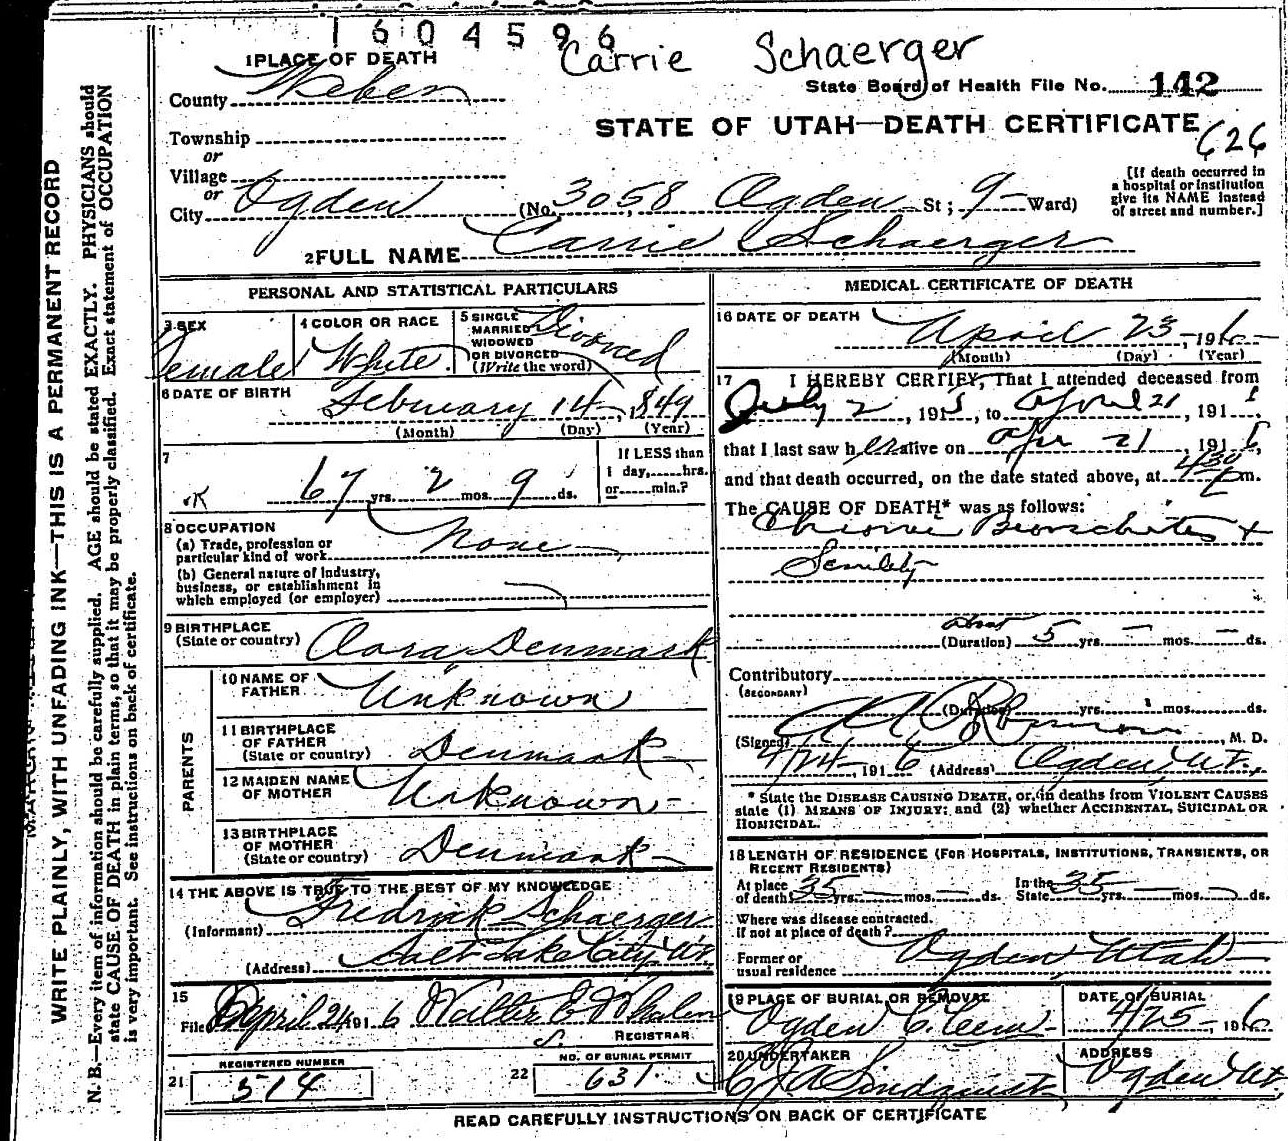 1604596
Carrie Schaerger
1 PLACE OF DEATH
County Weber
State Board of Health File No. 142
Township
or
Village
or
City Ogden
STATE OF UTAH—DEATH CERTIFICATE
626
(No. 3058 Ogden St; 9 Ward)
[If death occurred in
a hospital or institution
give its NAME instead
of street and number.]
2 FULL NAME Carrie Schaerger
WRITE PLAINLY, WITH UNFADING INK—THIS IS A PERMANENT RECORD
N. B.—Every item of information should be carefully supplied. AGE should be stated EXACTLY. PHYSICIANS should
state CAUSE OF DEATH in plain terms, so that it may be properly classified. Exact statement of OCCUPATION
is very important. See instructions on back of certificate.
PERSONAL AND STATISTICAL PARTICULARS
3 SEX
Female
4 COLOR OR RACE
White
5 SINGLE
MARRIED
WIDOWED
OR DIVORCED
(Write the word)
Divorced
6 DATE OF BIRTH
February 14, 1849
(Month) (Day) (Year)
7
OK
67 yrs. 2 mos. 9 ds.
If LESS than
1 day, hrs.
or min.?
8 OCCUPATION
(a) Trade, profession or
particular kind of work None
(b) General nature of Industry,
business, or establishment in
which employed (or employer)
9 BIRTHPLACE
(State or country) Denmark
PARENTS
10 NAME OF
FATHER Unknown
11 BIRTHPLACE
OF FATHER
(State or country) Denmark
12 MAIDEN NAME
OF MOTHER Unknown
13 BIRTHPLACE
OF MOTHER
(State or country) Denmark
14 THE ABOVE IS TRUE TO THE BEST OF MY KNOWLEDGE
(Informant) Fredrick Schaerger
(Address) Salt Lake City Ut
15
Filed April 24 1916 Walter E Whalen
REGISTRAR
REGISTERED NUMBER
21 514
NO. OF BURIAL PERMIT
22 631
MEDICAL CERTIFICATE OF DEATH
16 DATE OF DEATH
April 23, 1916
(Month) (Day) (Year)
17 I HEREBY CERTIFY, That I attended deceased from
July 2, 1915, to April 21, 191
that I last saw her alive on Apr 21, 191
and that death occurred, on the date stated above, at 430 m.
The CAUSE OF DEATH* was as follows:
Chronic Bronchitis +
Senility
(Duration) about 5 yrs. — mos. — ds.
Contributory
(SECONDARY)
(Duration) yrs. mos. ds.
(Signed) , M. D.
4/24, 1916 (Address) Ogden, Ut.
* State the DISEASE CAUSING DEATH, or, in deaths from VIOLENT CAUSES
state (1) MEANS OF INJURY; and (2) whether ACCIDENTAL, SUICIDAL OR
HOMICIDAL.
18 LENGTH OF RESIDENCE (FOR HOSPITALS, INSTITUTIONS, TRANSIENTS, OR
RECENT RESIDENTS)
At place
of death 35 yrs. — mos. — ds. In the
State 35 yrs. — mos. — ds.
Where was disease contracted.
If not at place of death?
Former or
usual residence Ogden Utah
19 PLACE OF BURIAL OR REMOVAL
Ogden C.
DATE OF BURIAL
4/25, 1916
20 UNDERTAKER
Lindquist
ADDRESS
Ogden Ut.
READ CAREFULLY INSTRUCTIONS ON BACK OF CERTIFICATE